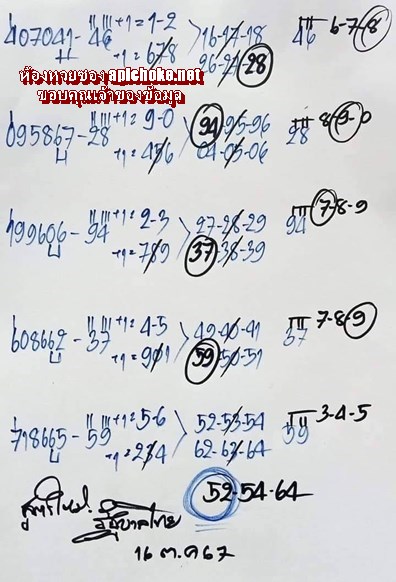 407041-46 +1=1-2 16-17-18 III 6-7-8
+1=678 96-27-28 46
ห้องหวยซอง aplchoke.net
ขอบคุณเจ้าของข้อมูล
095867-28 +1=9-0 94-95-96 III 8-9-0
+1=456 04-05-06 28
199606-94 +1=2-3 27-28-29 III 7-8-9
+1=789 37-38-39 94
608662-37 +1=4-5 49-40-41 III 7-8-9
+1=901 59-50-51 37
718665-59 +1=5-6 52-53-54 III 3-4-5
+1=234 62-63-64 59
52-54-64
16 ต.ค 67